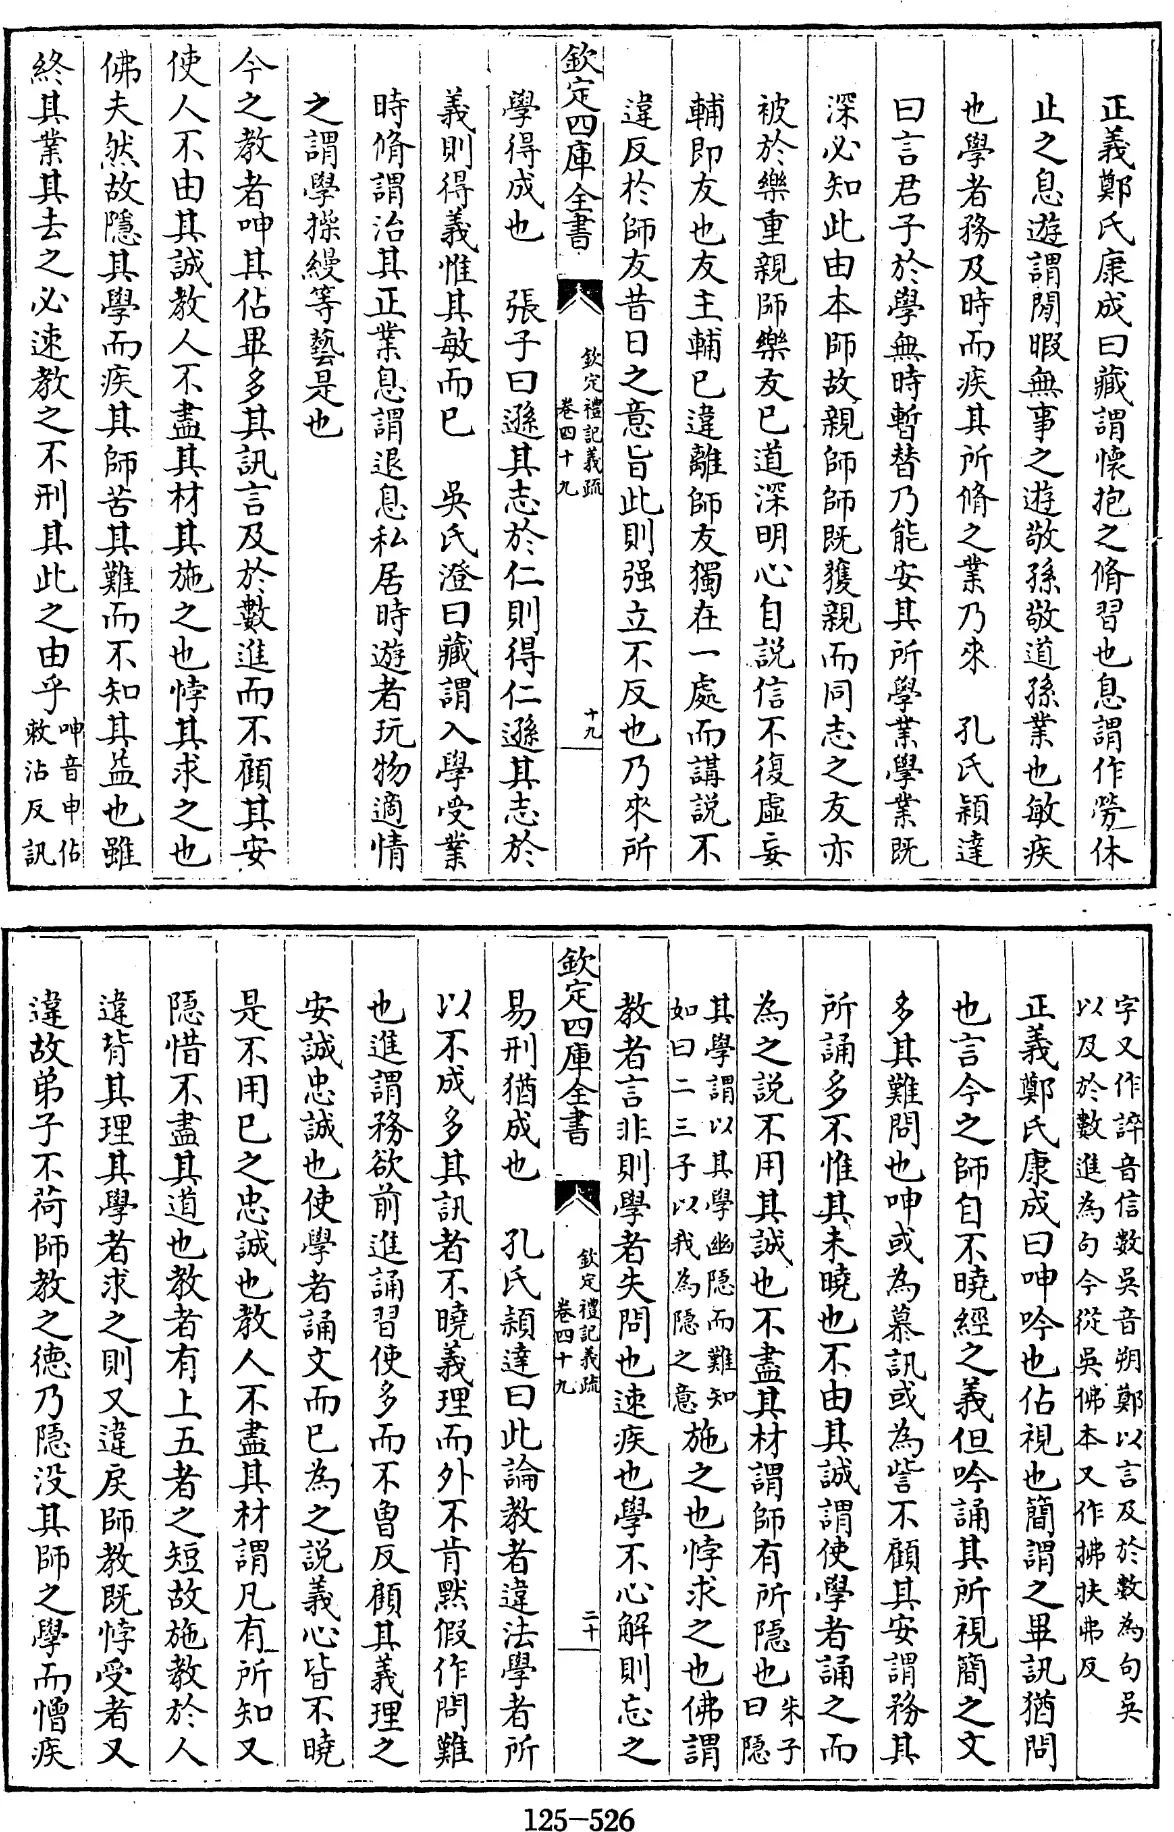 正義鄭氏康成曰藏謂懷抱之脩習也息謂作勞休
止之息遊謂閒暇無事之遊敬孫敬道孫業也敏疾
也學者務及時而疾其所脩之業乃來　孔氏穎達
曰言君子於學無時暫替乃能安其所學業學業既
深必知此由本師故親師師既獲親而同志之友亦
被於樂重親師樂友已道深明心自説信不復虛妄
輔即友也友主輔已違離師友獨在一處而講説不
違反於師友昔日之意旨此則强立不反也乃來所
欽定四庫全書
欽定禮記義疏
卷四十九
十九
學得成也　張子曰遜其志於仁則得仁遜其志於
義則得義惟其敏而已　吳氏澄曰藏謂入學受業
時脩謂治其正業息謂退息私居時遊者玩物適情
之謂學操縵等藝是也
今之教者呻其佔畢多其訊言及於數進而不顧其安
使人不由其誠教人不盡其材其施之也悖其求之也
佛夫然故隱其學而疾其師苦其難而不知其益也雖
終其業其去之必速教之不刑其此之由乎呻音申佔
敕沾反訊
字又作誶音信數吳音朔鄭以言及於數為句吳
以及於數進為句今從吳佛本又作拂扶弗反
正義鄭氏康成曰呻吟也佔視也簡謂之畢訊猶問
也言今之師自不曉經之義但吟誦其所視簡之文
多其難問也呻或為慕訊或為訾不顧其安謂務其
所誦多不惟其未曉也不由其誠謂使學者誦之而
為之説不用其誠也不盡其材謂師有所隱也朱子
曰隱
其學謂以其學幽隱而難知
如曰二三子以我為隱之意施之也悖求之也佛謂
教者言非則學者失問也速疾也學不心解則忘之
欽定四庫全書
欽定禮記義疏
卷四十九
二十
易刑猶成也　孔氏穎達曰此論教者違法學者所
以不成多其訊者不曉義理而外不肯默假作問難
也進謂務欲前進誦習使多而不曾反顧其義理之
安誠忠誠也使學者誦文而已為之説義心皆不曉
是不用已之忠誠也教人不盡其材謂凡有所知又
隱惜不盡其道也教者有上五者之短故施教於人
違背其理其學者求之則又違戾師教既悖受者又
違故弟子不荷師教之德乃隱没其師之學而憎疾
125-526